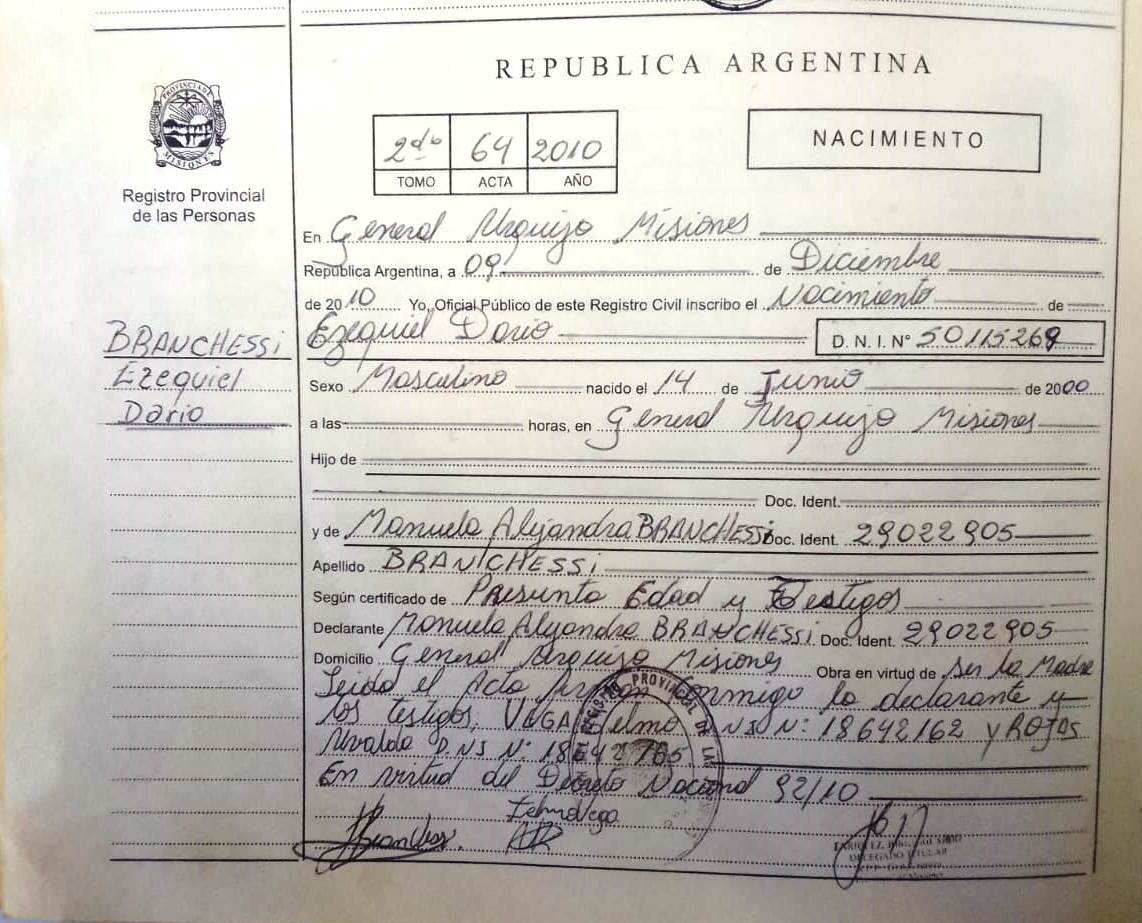 REPUBLICA ARGENTINA
PROVINCIA DE MISIONES
Registro Provincial
de las Personas
2do 64 2010
TOMO ACTA AÑO
NACIMIENTO
En General Urquijo Misiones
República Argentina, a 09 de Diciembre
de 2010 Yo, Oficial Público de este Registro Civil inscribo el Nacimiento de
BRANCHESSi
Ezequiel
Dario
Ezequiel Dario D. N. I. N° 50115269
Sexo Masculino nacido el 14 de Junio de 2000
a las horas, en General Urquijo Misiones
Hijo de
Doc. Ident.
y de Manuela Alejandra BRANCHESSi Doc. Ident. 29022905
Apellido BRANCHESSi
Según certificado de Presunta Edad y Testigos
Declarante Manuela Alejandra BRANCHESSi Doc. Ident. 29022905
Domicilio General Urquijo Misiones Obra en virtud de ser la Madre
Leida el Acta Firman Conmigo la declarante y
los testigos, VEGA Telmo DNI N: 18642162 y ROJAS
DNI N: 18642765
En virtud del Decreto Nacional 92/10
Telmo Vega
REGISTRO PROVINCIAL DE LAS
DELEGADO TITULAR